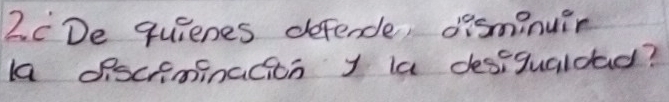 2.¿De quienes defende, disminuir
la discriminación y la desigualdad?